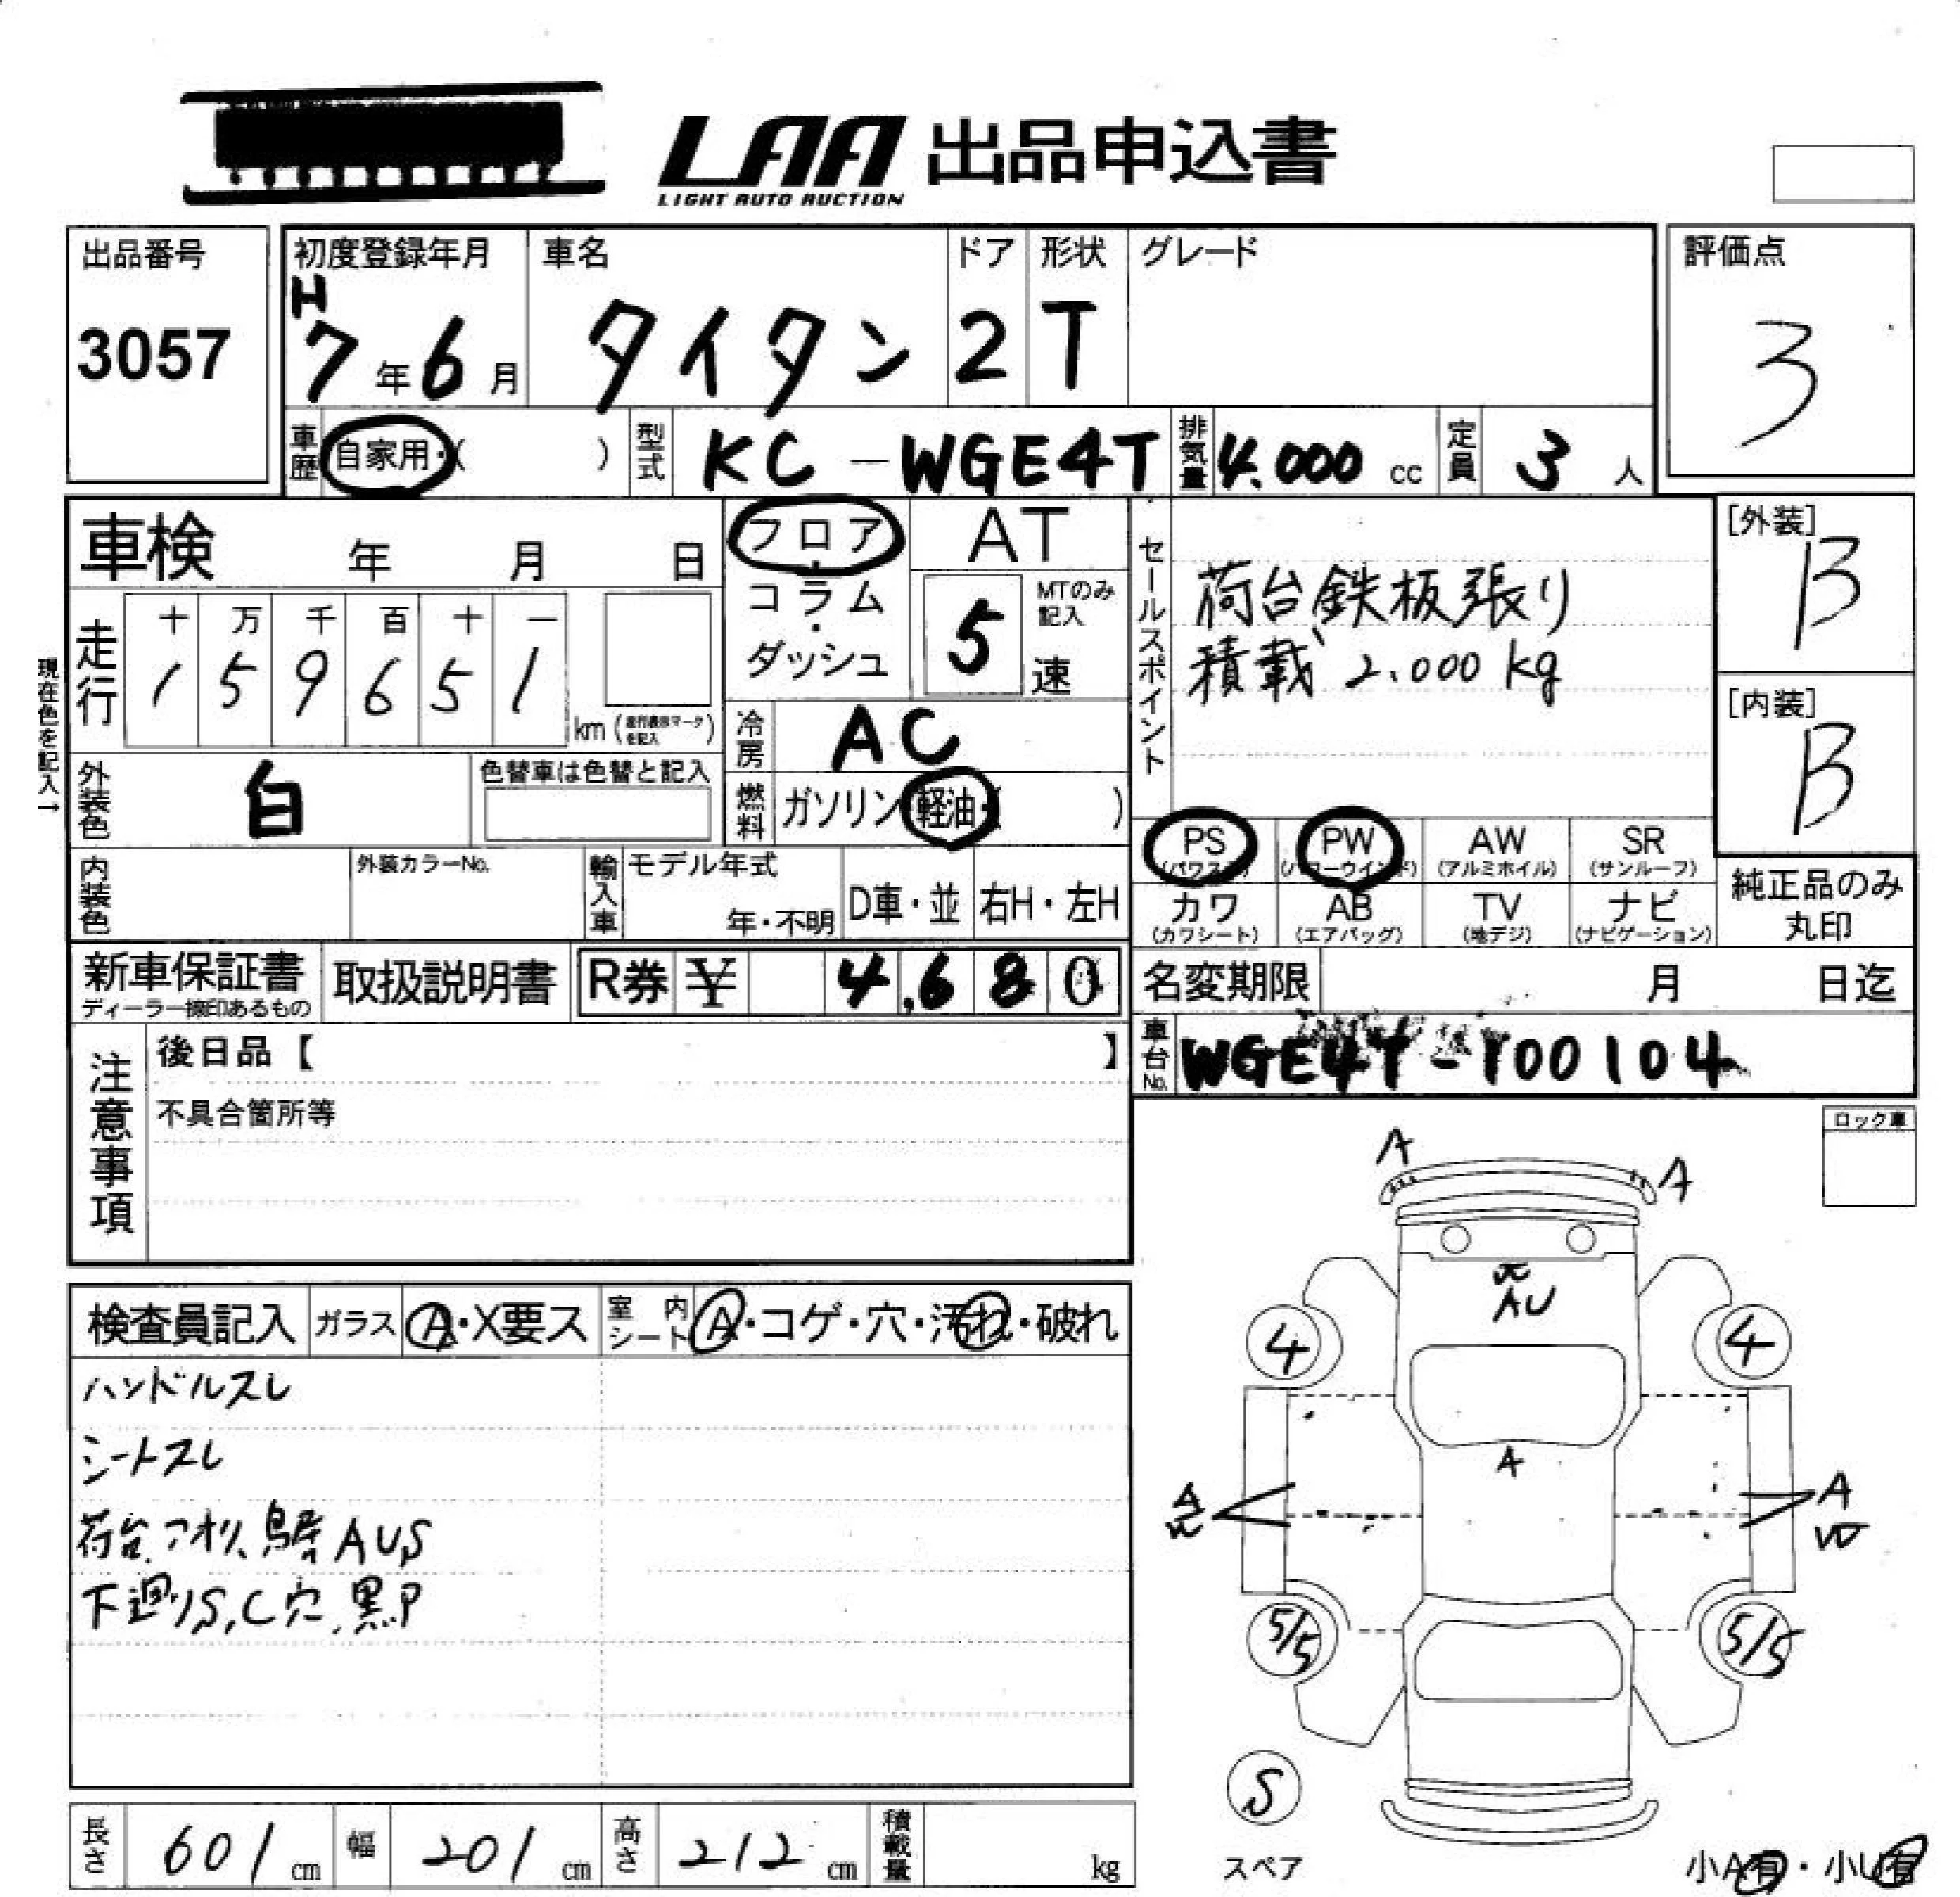 LAA 出品申込書
LIGHT AUTO AUCTION
出品番号
3057
初度登録年月
H
7年6月
車名
タイタン
ドア
2
形状
T
グレード
評価点
3
車歴 自家用・( )
型式 KC-WGE4T
排気量 4.000 cc
定員 3 人
車検 年 月 日
フロア
・
コラム
・
ダッシュ
AT
5 速
MTのみ
記入
セールスポイント
荷台鉄板張り
積載 2.000kg
[外装]
B
[内装]
B
現在色を記入→
走行
十 万 千 百 十 一
1 5 9 6 5 1
km (走行表示マークを記入)
冷房 AC
外装色 白
色替車は色替と記入
燃料 ガソリン・軽油・( )
PS
(パワステ)
PW
(パワーウインド)
AW
(アルミホイル)
SR
(サンルーフ)
カワ
(カワシート)
AB
(エアバッグ)
TV
(地デジ)
ナビ
(ナビゲーション)
純正品のみ
丸印
内装色
外装カラーNo.
輸入車
モデル年式
年・不明
D車・並
右H・左H
新車保証書
ディーラー捺印あるもの
取扱説明書
R券 ¥ 4,680
名変期限 月 日迄
車台No. WGE4T-100104
注意事項
後日品【 】
不具合箇所等
ロック車
検査員記入
ガラス A・X要ス
室内シート A・コゲ・穴・汚れ・破れ
ハンドルスレ
シートスレ
荷台、アオリ、鳥居AUS
下廻りS,C穴、黒P
A
A
AU
4
4
A
A
W
A
W
5/5
5/5
S
スペア
小A有・小U有
長さ 601 cm
幅 201 cm
高さ 212 cm
積載量 kg